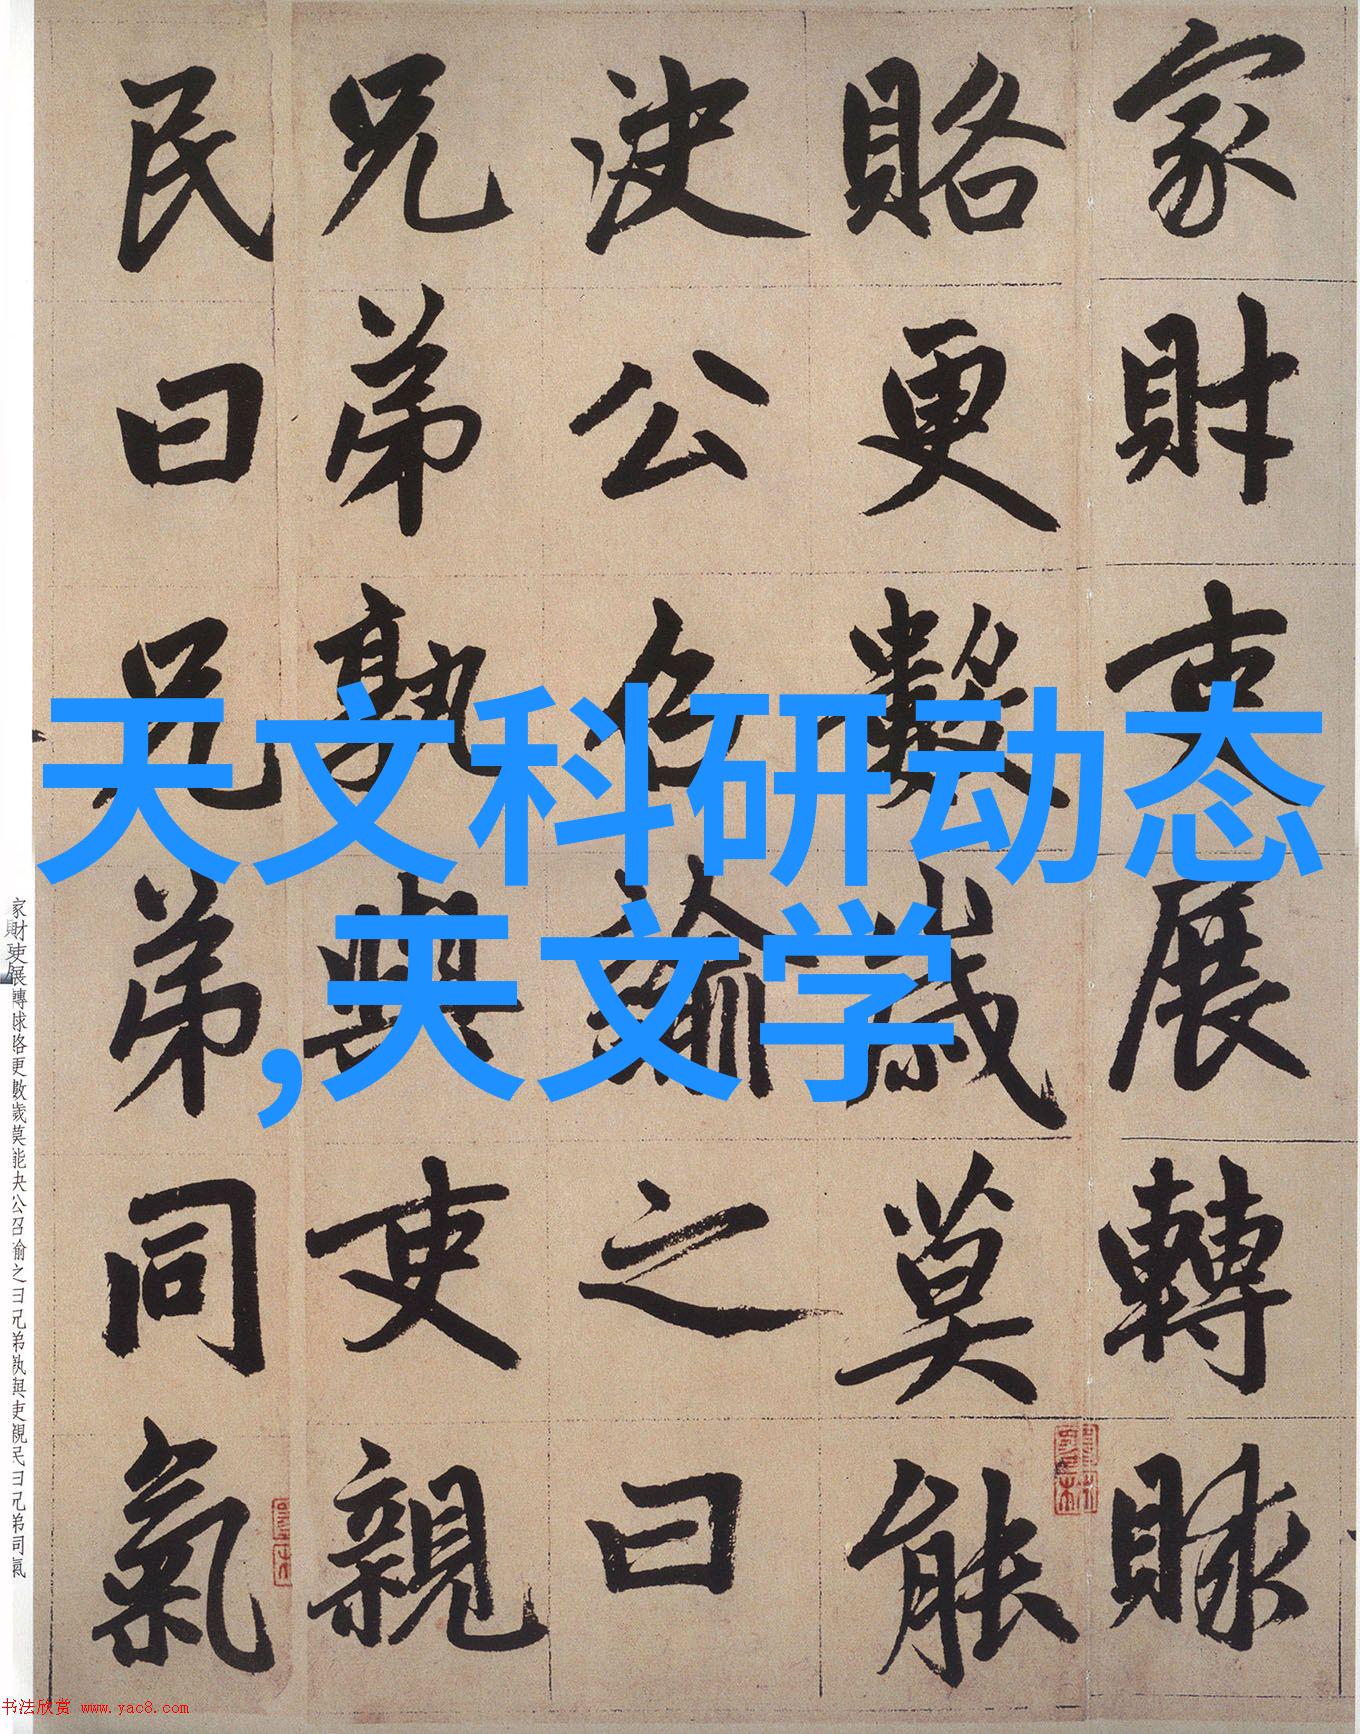 家財吏展轉賕
賂更數歲莫能
決公召諭之曰
兄弟孰與吏親
民曰兄弟同氣
天文科研动态
,天文学
家財吏展轉賕賂更數歲莫能決公召諭之曰兄弟孰與吏親民曰兄弟同氣
书法欣赏 www.yac8.com